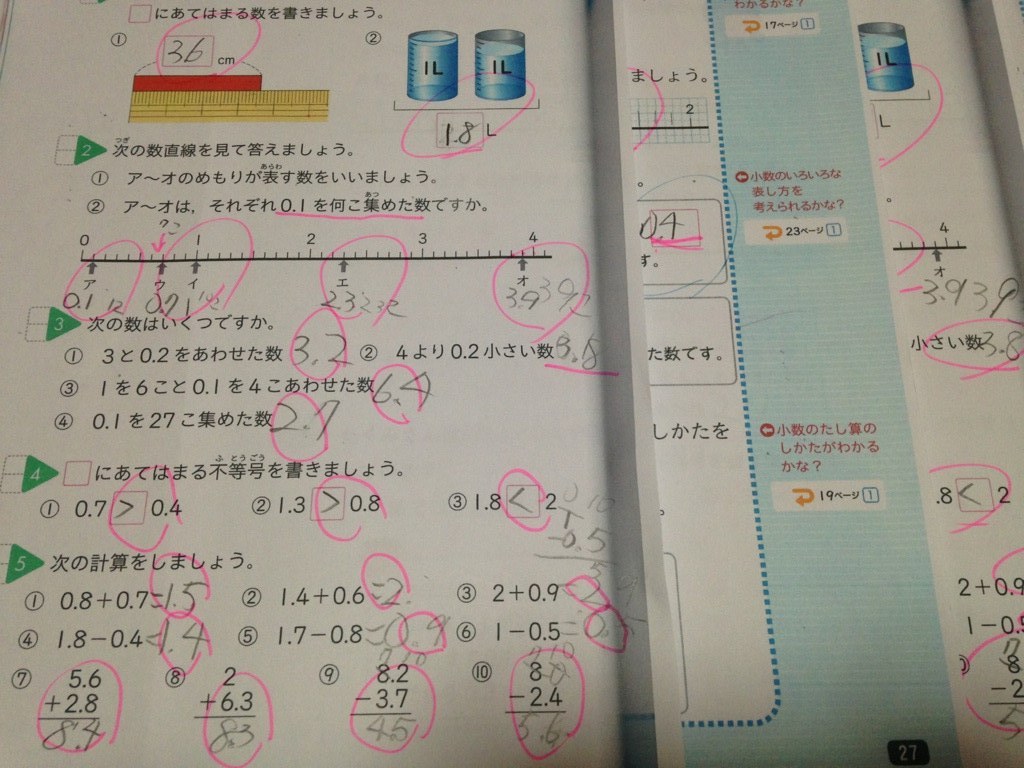 □にあてはまる数を書きましょう。
① 3.6 cm
② 1L 1L
1.8 L
2 次の数直線を見て答えましょう。
① ア〜オのめもりが表す数をいいましょう。
② ア〜オは，それぞれ0.1を何こ集めた数ですか。
0 1 2 3 4
ア ウ イ エ オ
0.1 0.7 1 2.3 3.9
3 次の数はいくつですか。
① 3と0.2をあわせた数 3.2 ② 4より0.2小さい数 3.8
③ 1を6こと0.1を4こあわせた数 6.4
④ 0.1を27こ集めた数 2.7
4 □にあてはまる不等号を書きましょう。
① 0.7 > 0.4 ② 1.3 > 0.8 ③ 1.8 < 2
5 次の計算をしましょう。
① 0.8＋0.7=1.5 ② 1.4＋0.6=2. ③ 2＋0.9=2.9
④ 1.8－0.4=1.4 ⑤ 1.7－0.8=0.9 ⑥ 1－0.5=0.5
⑦ 5.6 ⑧ 2 ⑨ 8.2 ⑩ 8
＋2.8 ＋6.3 －3.7 －2.4
8.4 8.3 4.5 5.6
わかるかな？
17ページ 1
ましょう。
2
0.4
す。
た数です。
しかたを
小数のいろいろな
表し方を
考えられるかな？
23ページ 1
小数のたし算の
しかたがわかる
かな？
19ページ 1
27
1L
L
4
オ
3.9 39
小さい数3.8
.8 < 2
2＋0.9
1－0.5
8
－2
5